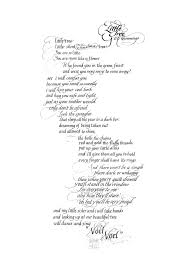 Little
Tree
e.e. cummings
little tree
little silent
you are so little
you are more like a flower
who found you in the green forest
and were you very sorry to come away?
see i will comfort you
because you smell so sweetly
i will kiss your cool bark
and hug you safe and tight
just as your mother would
only don't be afraid
look the spangles
that sleep all the year in a dark box
dreaming of being taken out
and allowed to shine
the balls the chains
red and gold the fluffy threads
put up your little arms
and i'll give them all to you to hold
every finger shall have its ring
and there won't be a single
place dark or unhappy
then when you're quite dressed
you'll stand in the window
for everyone to see
and how they'll stare
oh but you'll be very proud
and my little sister and i will take hands
and looking up at our beautiful tree
we'll dance and sing
Noel
Noel